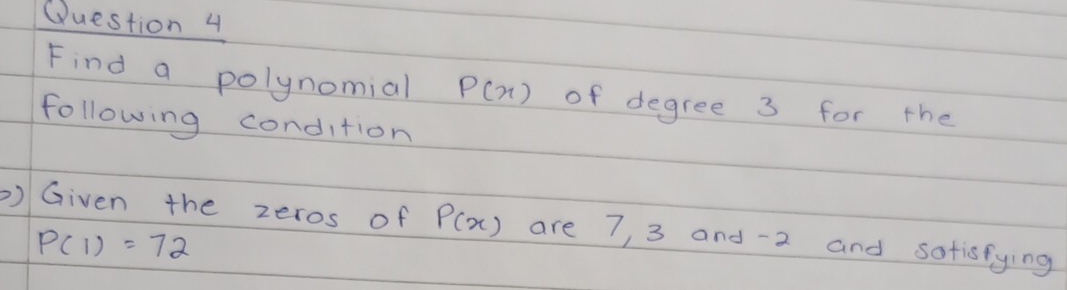 Question 4
Find a polynomial P(x) of degree 3 for the
following condition
) Given the zeros of P(x) are 7, 3 and -2 and satisfying
P(1) = 72